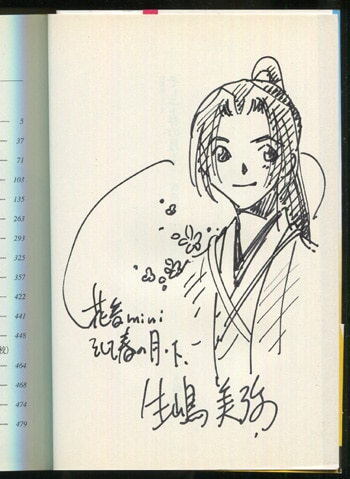 5
37
71
103
135
263
293
325
357
422
441
448
校)
464
468
474
479
花音mini
そして春の月・下、
生嶋美弥